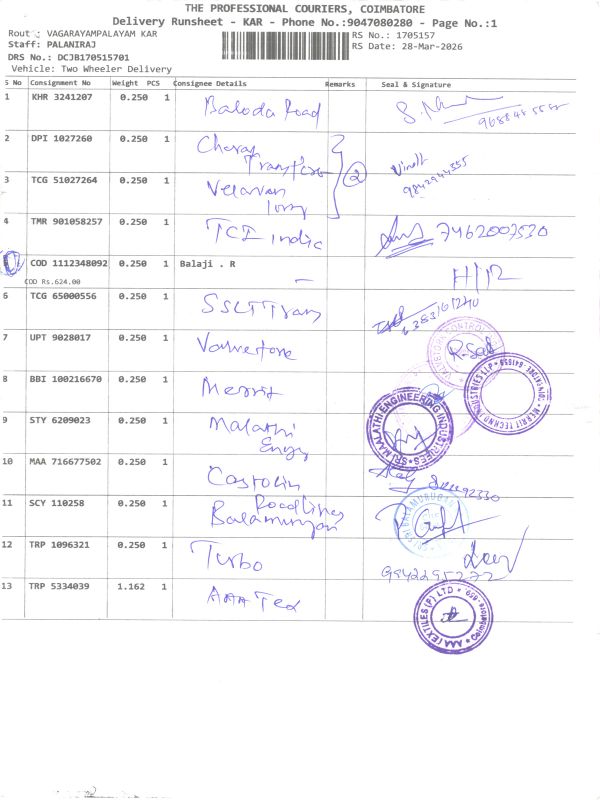 THE PROFESSIONAL COURIERS, COIMBATORE
Delivery Runsheet - KAR - Phone No.:9047080280 - Page No.:1
Route : VAGARAYAMPALAYAM KAR RS No.: 1705157
Staff: PALANIRAJ RS Date: 28-Mar-2026
DRS No.: DCJB170515701
Vehicle: Two Wheeler Delivery
S No Consignment No Weight PCS Consignee Details Remarks Seal & Signature
1 KHR 3241207 0.250 1 Baloda Road
2 DPI 1027260 0.250 1
3 TCG 51027264 0.250 1 Velavan
② Vinoth
9842944355
4 TMR 901058257 0.250 1 TCI indic 7462007530
COD 1112348092 0.250 1 Balaji . R H/R
COD Rs.624.00
6 TCG 65000556 0.250 1
7 UPT 9028017 0.250 1 Valvertore
8 BBI 100216670 0.250 1 Merrit
MERRIT TECHNO INDUSTRIES LLP
9 STY 6209023 0.250 1 Malathi Engg
SRI MAALATHI ENGINEERING INDUSTRIES
10 MAA 716677502 0.250 1
11 SCY 110258 0.250 1 Roadlines
Balamurugan
12 TRP 1096321 0.250 1 Turbo
9942295272
13 TRP 5334039 1.162 1 AAA Tex
AAA TEXTILES (P) LTD